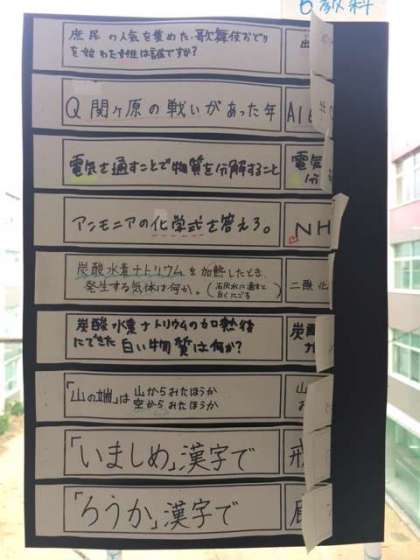 5教科
庶民の人気を集めた歌舞伎おどり
を始めた女性は誰ですか?
出
Q 関ヶ原の戦いがあった年
A16
電気を通すことで物質を分解すること
電気
分
アンモニアの化学式を答えろ。
NH
炭酸水素ナトリウムを加熱したとき、
発生する気体は何か。(石灰水に通すと
白くにごる)
二酸化
炭酸水素ナトリウムの加熱後
にできた白い物質は何か?
炭酸
ナ
「山の端」は 山からみたほうか
空からみたほうか
山
「いましめ」漢字で
戒
「ろうか」漢字で
廊